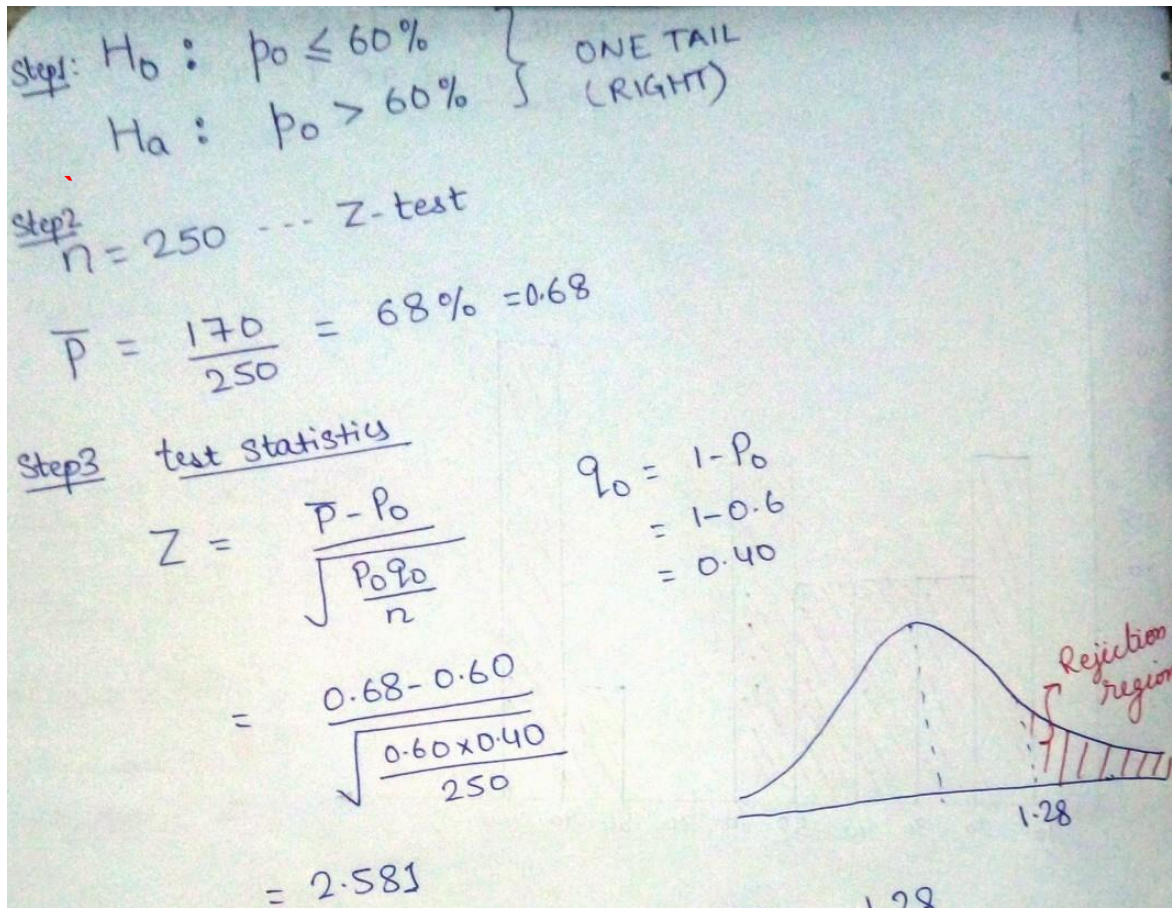 Step1: H₀ : p₀ ≤ 60% } ONE TAIL
(RIGHT)
Hₐ : p₀ > 60%
Step2
n = 250 --- Z-test
p̅ = 170/250 = 68% = 0.68
Step3 test statistics
Z = (p̅ - p₀) / √(p₀q₀/n)
q₀ = 1-p₀
= 1-0.6
= 0.40
= (0.68-0.60) / √(0.60x0.40/250)
Rejection
region
1.28
= 2.581
1.28